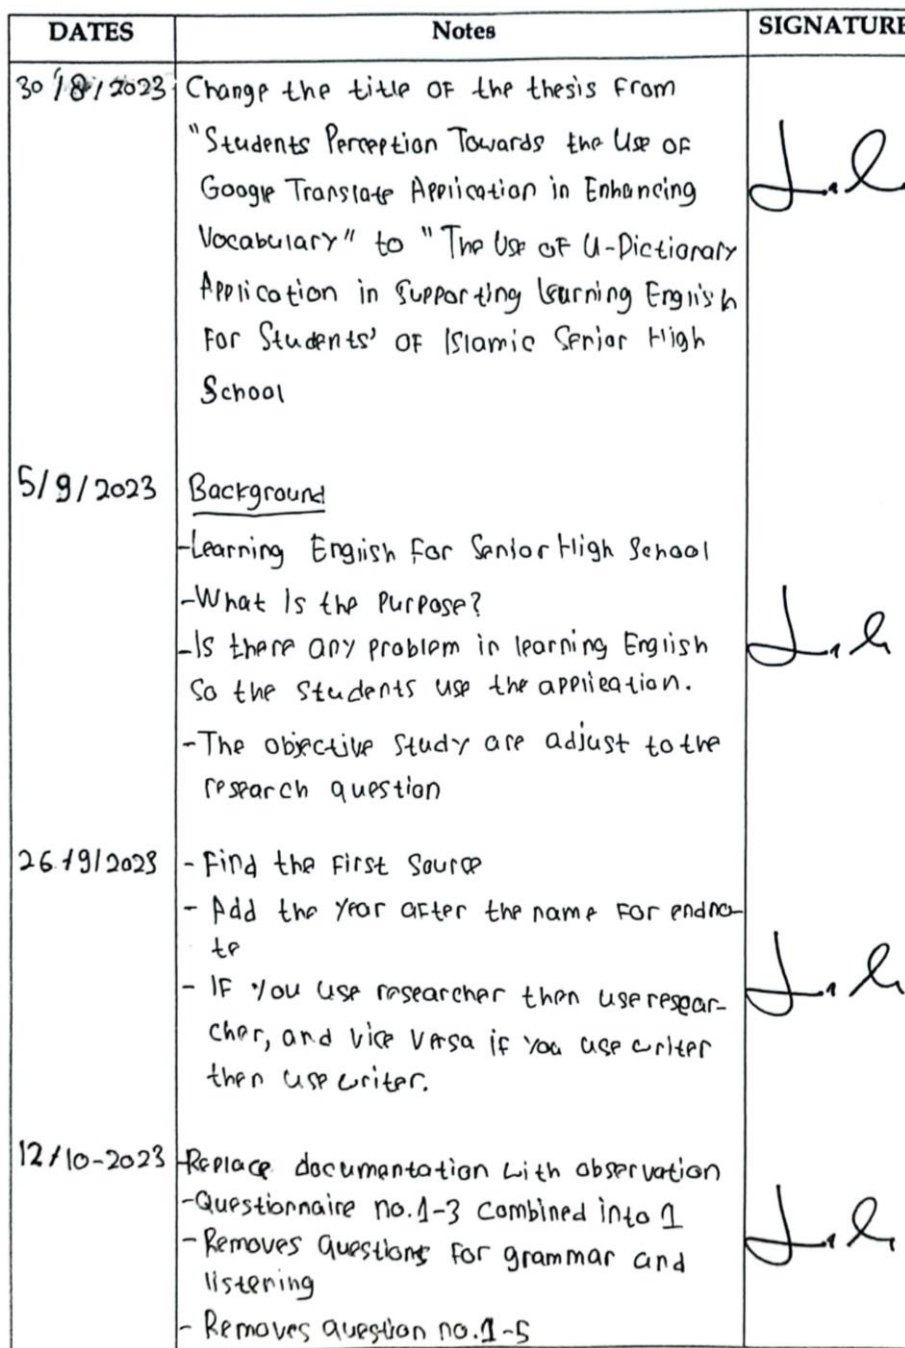 DATES Notes SIGNATURE
30/8/2023 Change the title OF the thesis From
"Students Perception Towards the Use OF
Google Translate Application in Enhancing
Vocabulary" to "The Use OF U-Dictionary
Application in Supporting learning English
For Students' OF Islamic Senior High
School
5/9/2023 Background
-Learning English For Senior High School
-What Is the Purpose?
-Is there any problem in learning English
So the students use the application.
-The objective Study are adjust to the
research question
26/9/2023 - Find the First Source
- Add the Year aFter the name For endno-
te
- IF You use researcher then use resear-
cher, and vice versa if You use writer
then use writer.
12/10-2023 -Replace documentation with observation
-Questionnaire no.1-3 combined into 1
- Removes Questions For grammar and
listening
- Removes question no.1-5